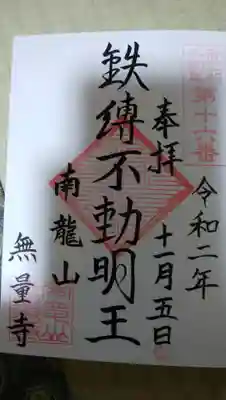 第十六番
令和二年
十一月五日
奉拝
鉄縛不動明王
南龍山
無量寺